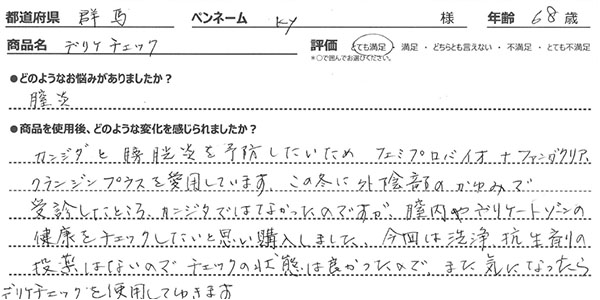 都道府県 群馬 ペンネーム KY 様 年齢 68歳
商品名 デリケチェック 評価 とても満足・満足・どちらとも言えない・不満足・とても不満足
*○で囲んでお選びください。
●どのようなお悩みがありましたか？
膣炎
●商品を使用後、どのような変化を感じられましたか？
カンジダと膀胱炎を予防したいため フェミプロバイオ+ファンガクリア、
クランジンプラスを愛用しています。この冬に外陰部のかゆみで
受診したところ、カンジタではなかったのですが、膣内やデリケートゾーンの
健康をチェックしたいと思い購入しました。今回は洗浄、抗生剤の
投薬はないのでチェックの状態は良かったので、また気になったら
デリケチェックを使用してゆきます